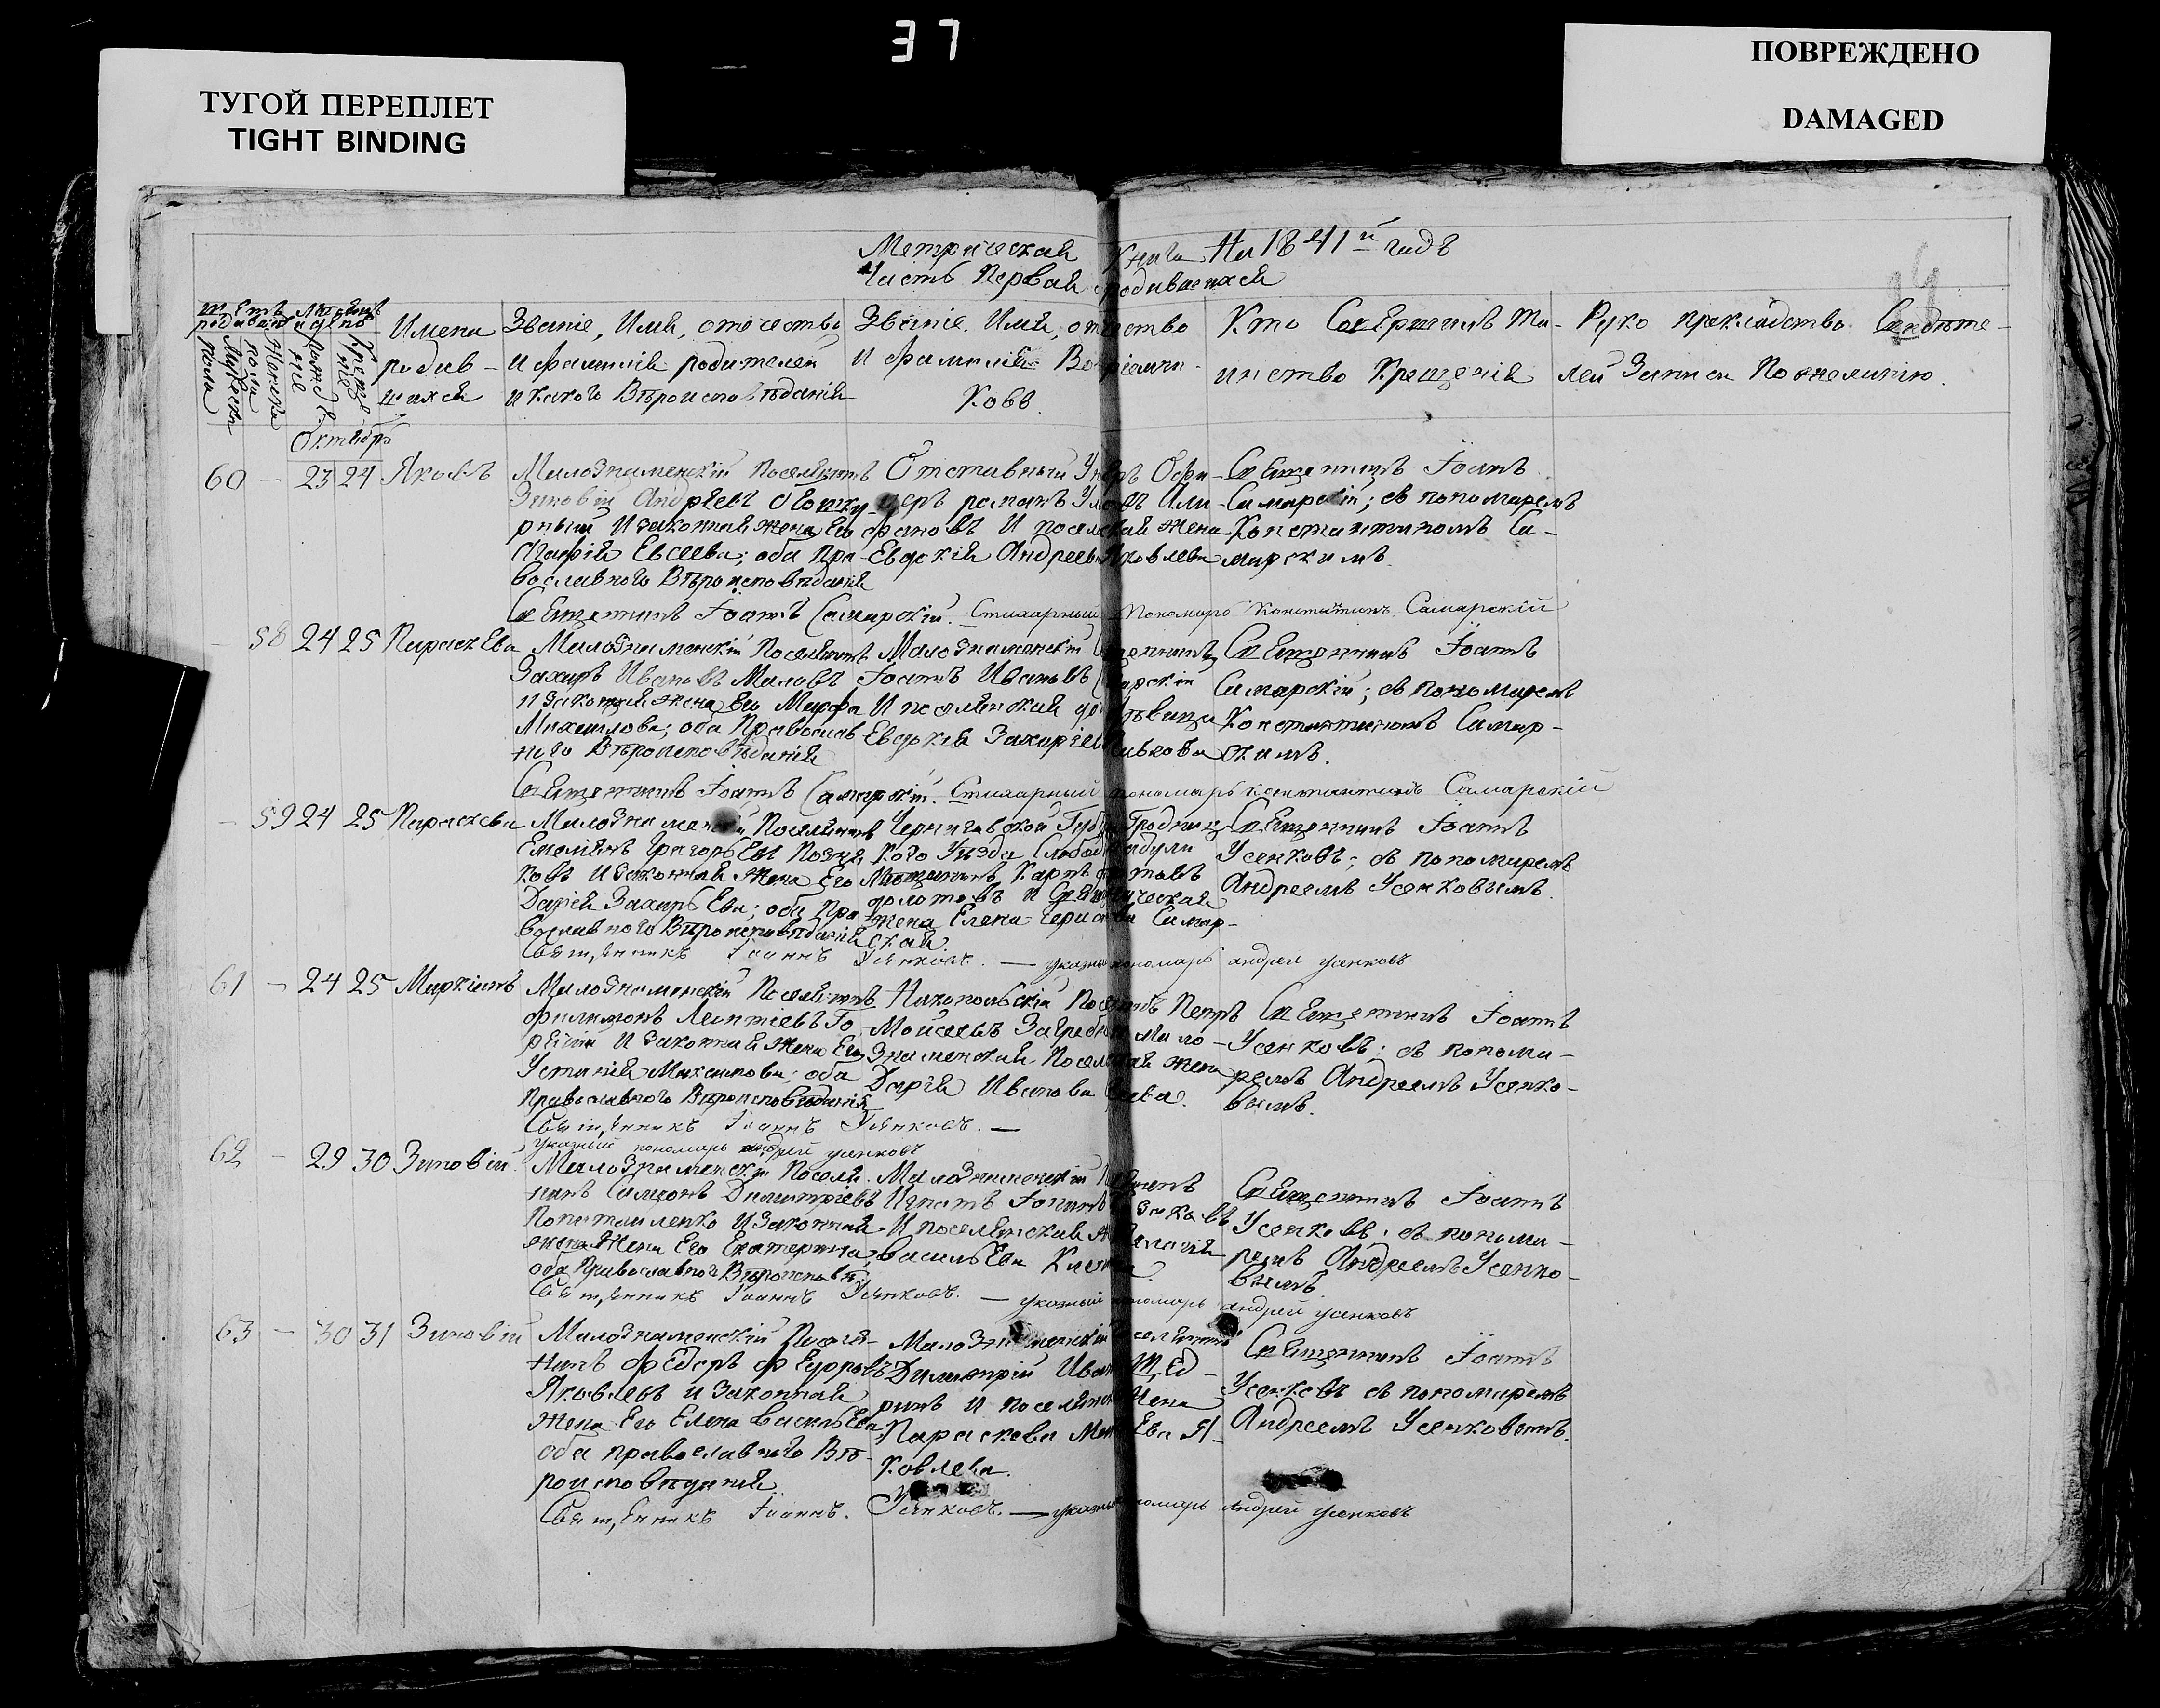 37
ТУГОЙ ПЕРЕПЛЕТ
TIGHT BINDING
ПОВРЕЖДЕНО
DAMAGED
Метрическая Книга На 1841й годъ
Часть Первая родившихся
Имена
родив-
шихся
Званіе, Имя, отечество
и фамилія родителей
и какого Вѣроисповѣданія
Званіе, Имя, отчество
и фамилія Воспріемни-
ковъ.
Кто Совершилъ Та-
инство Крещенія
Руко прикладство Свидѣте-
лей Записи По желанію.
Октябрь
60 - 23 24 Яковъ
Малознаменскій поселянинъ
Зиновій Андреевъ
и законная жена Его
Агафія Евсеева; оба Пра-
вославнаго Вѣроисповѣданія
Отставный Унтеръ Офи-
церъ романъ
и поселянская жена
Евдокія Андреева Яковлева
Священникъ Іоаннъ
Самарскій; съ пономаремъ
Константиномъ Са-
марскимъ.
Священникъ Іоаннъ Самарскій. Стихарный Пономарь Константинъ Самарскій
- 58 24 25 Параскева
Малознаменскій Поселянинъ
Захаръ Ивановъ Маловъ
и Законная жена Его Марфа
Михаилова; оба Православ
наго Вѣроисповѣданія
Малознаменскій Священникъ
Іоаннъ Ивановъ Самарскій
И поселянская
Евдокія Захаріева
Священникъ Іоаннъ
Самарскій; съ пономаремъ
Константиномъ Самар-
скимъ.
Священникъ Іоаннъ Самарскій. Стихарный пономарь Константинъ Самарскій
- 59 24 25 Параскева
Малознаменскій Поселянинъ
Емельянъ Григорьевъ Позня
ковъ И законная Жена Его
Дарія Захарьева; оба Пра-
вославнаго Вѣроисповѣданія
Черниговской Губ. Городниц
каго Уѣзда
Мѣщанинъ Карпъ
и Священническая
жена Елена Самар-
ская
Священникъ Іоаннъ
Усенковъ; съ пономаремъ
Андреемъ Усенковымъ.
Священникъ Іоаннъ Усенковъ. — указный пономарь андрей усенковъ
61 - 24 25 Маркіанъ
Малознаменскій Поселянинъ
Филимонъ Леонтіевъ
И законная жена Его
Устинія Максимова; оба
Православнаго Вѣроисповѣданія
Никопольскій Поселянинъ Петръ
Моисеевъ Мало-
Знаменская Поселянская жена
Дарія Иванова
Священникъ Іоаннъ
Усенковъ; съ понома-
ремъ Андреемъ Усенко-
вымъ.
Священникъ Іоаннъ Усенковъ. —
указный пономарь андрей усенковъ
62 - 29 30 Зиновій
Малознаменскій Поселя-
нинъ Симеонъ Димитріевъ
И Законная
жена Его Екатерина;
оба Православнаго
Малознаменскій
Игнатъ
И поселянская
Васильева
Священникъ Іоаннъ
Усенковъ; съ понома-
ремъ Андреемъ Усенко-
вымъ.
Священникъ Іоаннъ Усенковъ. — указный пономарь андрей усенковъ
63 - 30 31 Зиновій
Малознаменскій Поселя-
нинъ Федоръ Федоровъ
Яковлевъ и Законная
Жена Его Елена Васильева
оба православнаго Вѣ-
роисповѣданія
Малознаменскій поселянинъ
Димитрій Щед-
ринъ и поселянская Жена
Параскева Я-
ковлева.
Священникъ Іоаннъ
Усенковъ съ пономаремъ
Андреемъ Усенковымъ.
Священникъ Іоаннъ. Усенковъ. — указный пономарь андрей усенковъ